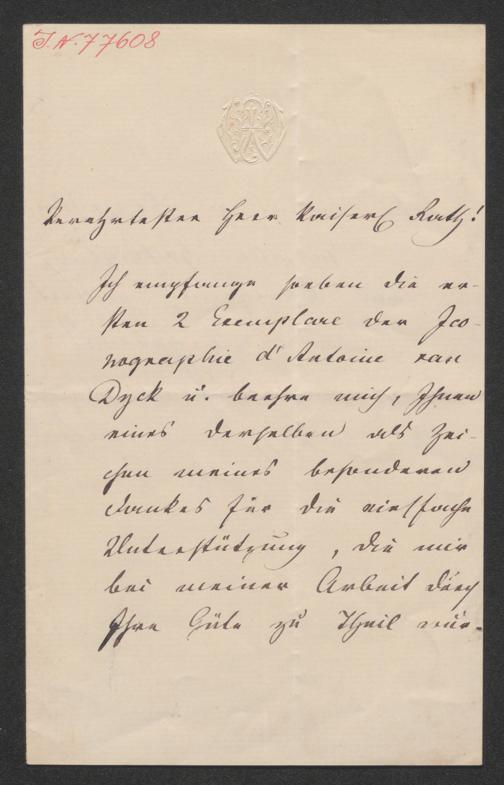 J. N. 77608
Verehrtester Herr Kaiserl Rath!
Ich empfange soeben die er-
sten 2 Exemplare der Ico-
nographie d'Antoine van
Dyck u. beehre mich, Ihnen
eines derselben als Zei-
chen meines besonderen
Dankes für die vielfache
Unterstützung, die mir
bei meiner Arbeit durch
Ihre Güte zu Theil wur-